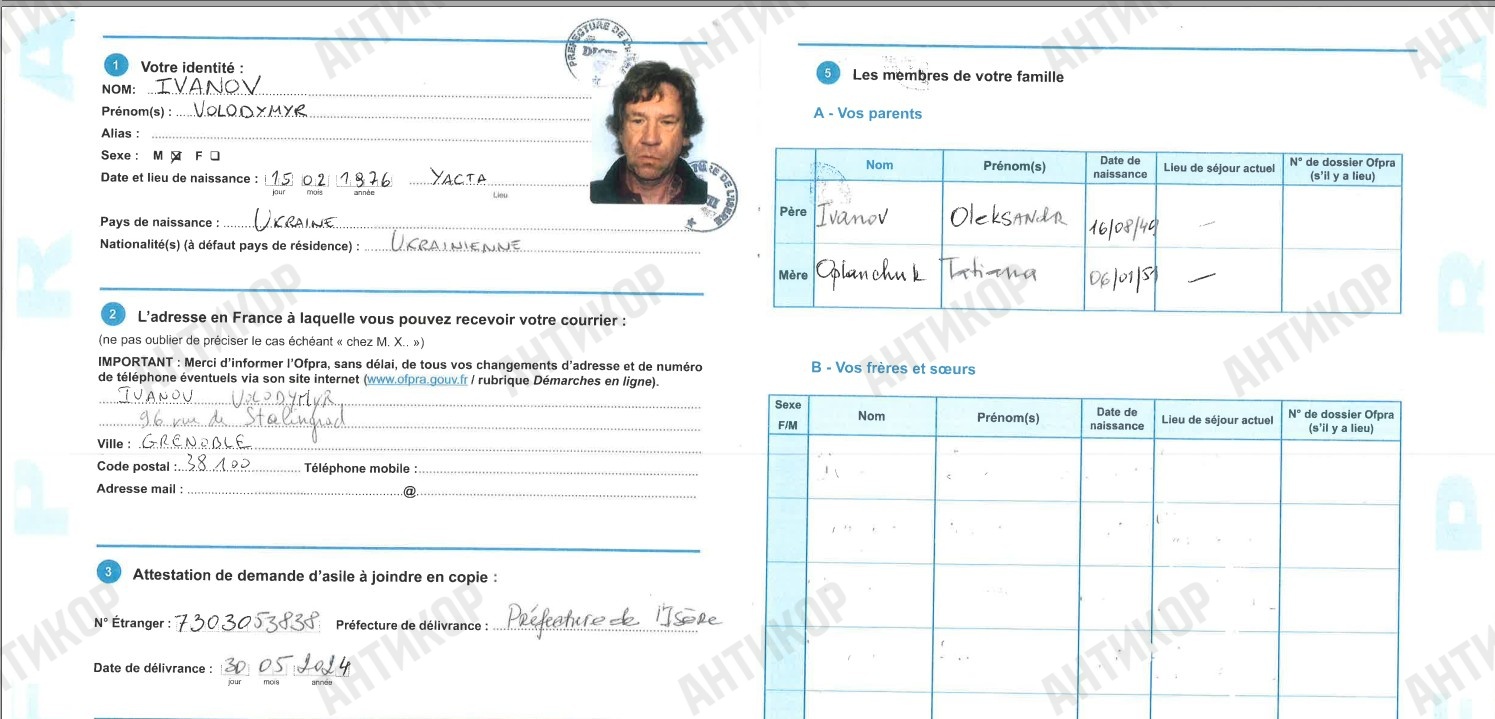 1 Votre identité :
NOM: IVANOV
Prénom(s) : VOLODYMYR
Alias :
Sexe : M ☒ F ☐
Date et lieu de naissance : 15 02 1976 YACTA
jour mois année Lieu
Pays de naissance : UKRAINE
Nationalité(s) (à défaut pays de résidence) : UKRAINIENNE
PRÉFECTURE DE L'ISÈRE
2 L'adresse en France à laquelle vous pouvez recevoir votre courrier :
(ne pas oublier de préciser le cas échéant « chez M. X.. »)
IMPORTANT : Merci d'informer l'Ofpra, sans délai, de tous vos changements d'adresse et de numéro
de téléphone éventuels via son site internet (www.ofpra.gouv.fr / rubrique Démarches en ligne).
IVANOV VOLODYMYR
96 rue de Stalingrad
Ville : GRENOBLE
Code postal : 38100 Téléphone mobile :
Adresse mail : @
3 Attestation de demande d'asile à joindre en copie :
N° Étranger : 7303053838 Préfecture de délivrance : Préfecture de l'Isère
Date de délivrance : 30 05 2024
jour mois année
5 Les membres de votre famille
A - Vos parents
Nom Prénom(s) Date de naissance Lieu de séjour actuel N° de dossier Ofpra (s'il y a lieu)
Père Ivanov Oleksandr 16/08/49 —
Mère Oplanchuk Tatiana 06/01/51 —
B - Vos frères et sœurs
Sexe F/M Nom Prénom(s) Date de naissance Lieu de séjour actuel N° de dossier Ofpra (s'il y a lieu)
АНТИКОР